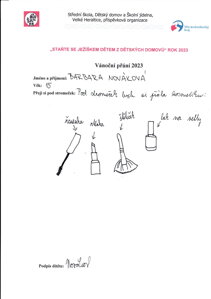 Střední škola, Dětský domov a Školní jídelna,
Velké Heraltice, příspěvková organizace
„STAŇTE SE JEŽÍŠKEM DĚTEM Z DĚTSKÝCH DOMOVŮ“ ROK 2023
Vánoční přání 2023
Jméno a příjmení: BARBARA NOVÁKOVÁ
Věk: 15
Přeji si pod stromeček: Pod stromeček bych si přála kosmetiku:
řasenka rtěnka štětka lak na nehty
Podpis dítěte: Nováková